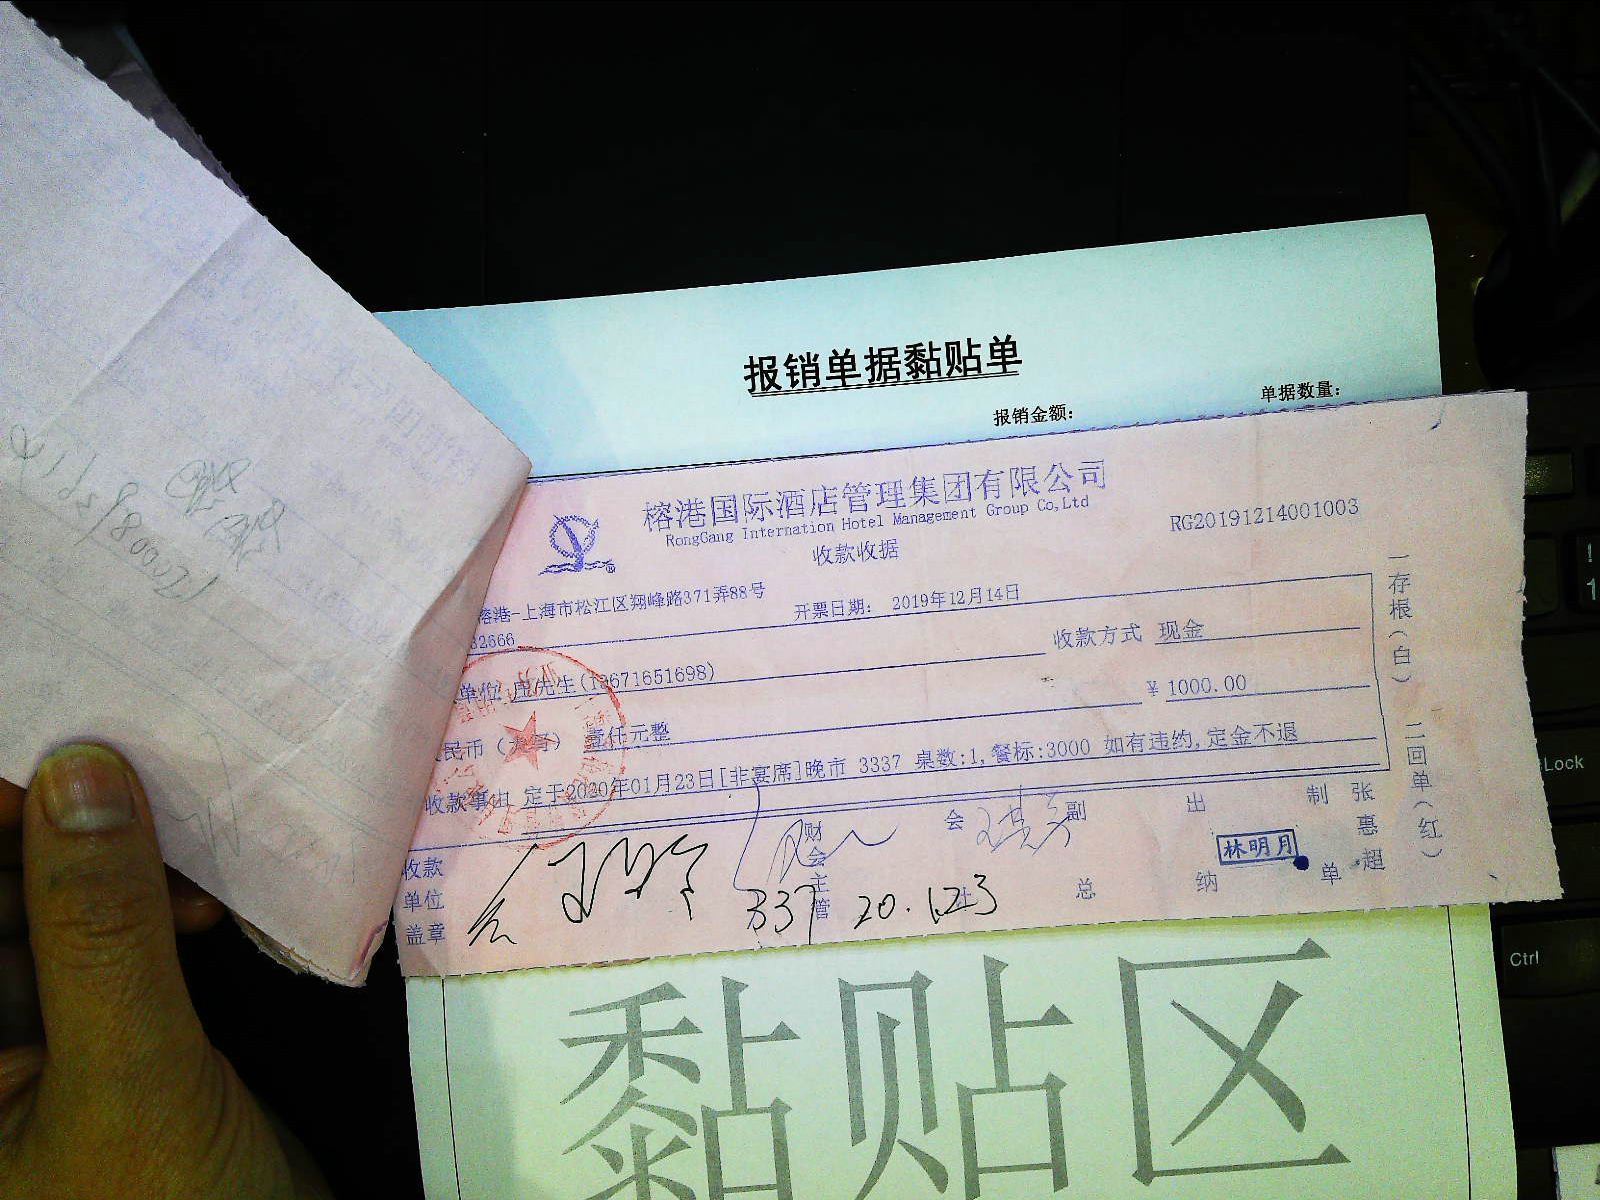 报销单据黏贴单
单据数量：
报销金额：
榕港国际酒店管理集团有限公司
RongGang Internation Hotel Management Group Co,Ltd
RG20191214001003
收款收据
榕港-上海市松江区翔峰路371弄88号
开票日期： 2019年12月14日
32666
收款方式 现金
单位 先生(13671651698)
¥ 1000.00
民币（大写） 壹仟元整
收款事由 定于2020年01月23日[非宴席]晚市 3337 桌数:1,餐标:3000 如有违约,定金不退
一存根(白) 二回单(红)
收款单位盖章
财会主管
会
副总
出纳
林明月
制单
张惠超
337 20.1.23
黏贴区
Lock
Ctrl
!
1